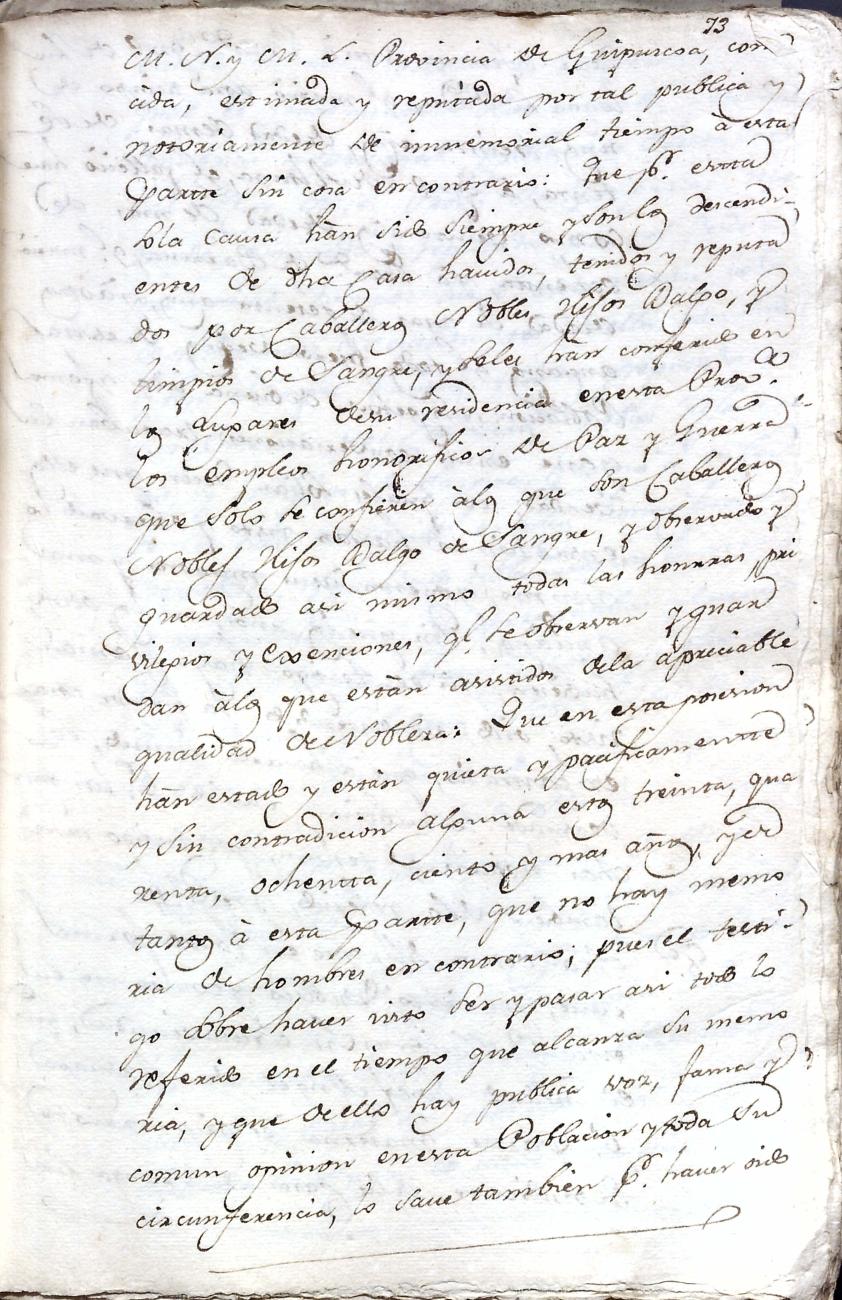 73
M. N. y M. L. Provincia de Guipuscoa, con
cida, estimada y reputada por tal publica y
notoriamente de inmemorial tiempo à esta
Partte sin cosa en contrario: Que pr. estta
sola Causa hàn sido siempre y son los descendi-
entes de dha Casa havidos, tenidos y reputa
dos por Caballeros Nobles Hijos Dalgo, y
limpios de Sangre, y seles hàn conferido en
los Lugares desu residencia enesta Prova.
los empleos honorificos de Paz y Guerra
que solo se confieren àlos que son Caballeros
Nobles Hijos Dalgo de Sangre, y observado y
guardado asi mismo todas las honrras, pri
vilegios y exenciones, ql. se observan y guar
dan àlos que estàn asistidos dela apreciable
qualidad de Nobleza: Que en esta posesion
hàn estado y estàn quieta y pacificamentte
y sin contradicion alguna estos treinta, qua
renta, ochentta, ciento y mas años, y en
tantos à esta Partte, que no hay memo
ria de hombres en contrario; pues el testi-
go sobre haver visto ser y pasar asi todo lo
referido en el tiempo que alcanza su memo
ria, y que de ello hay publica voz, fama y
comun opinion enesta Poblacion y toda su
circunferencia, lo save tambien pr. haver oido